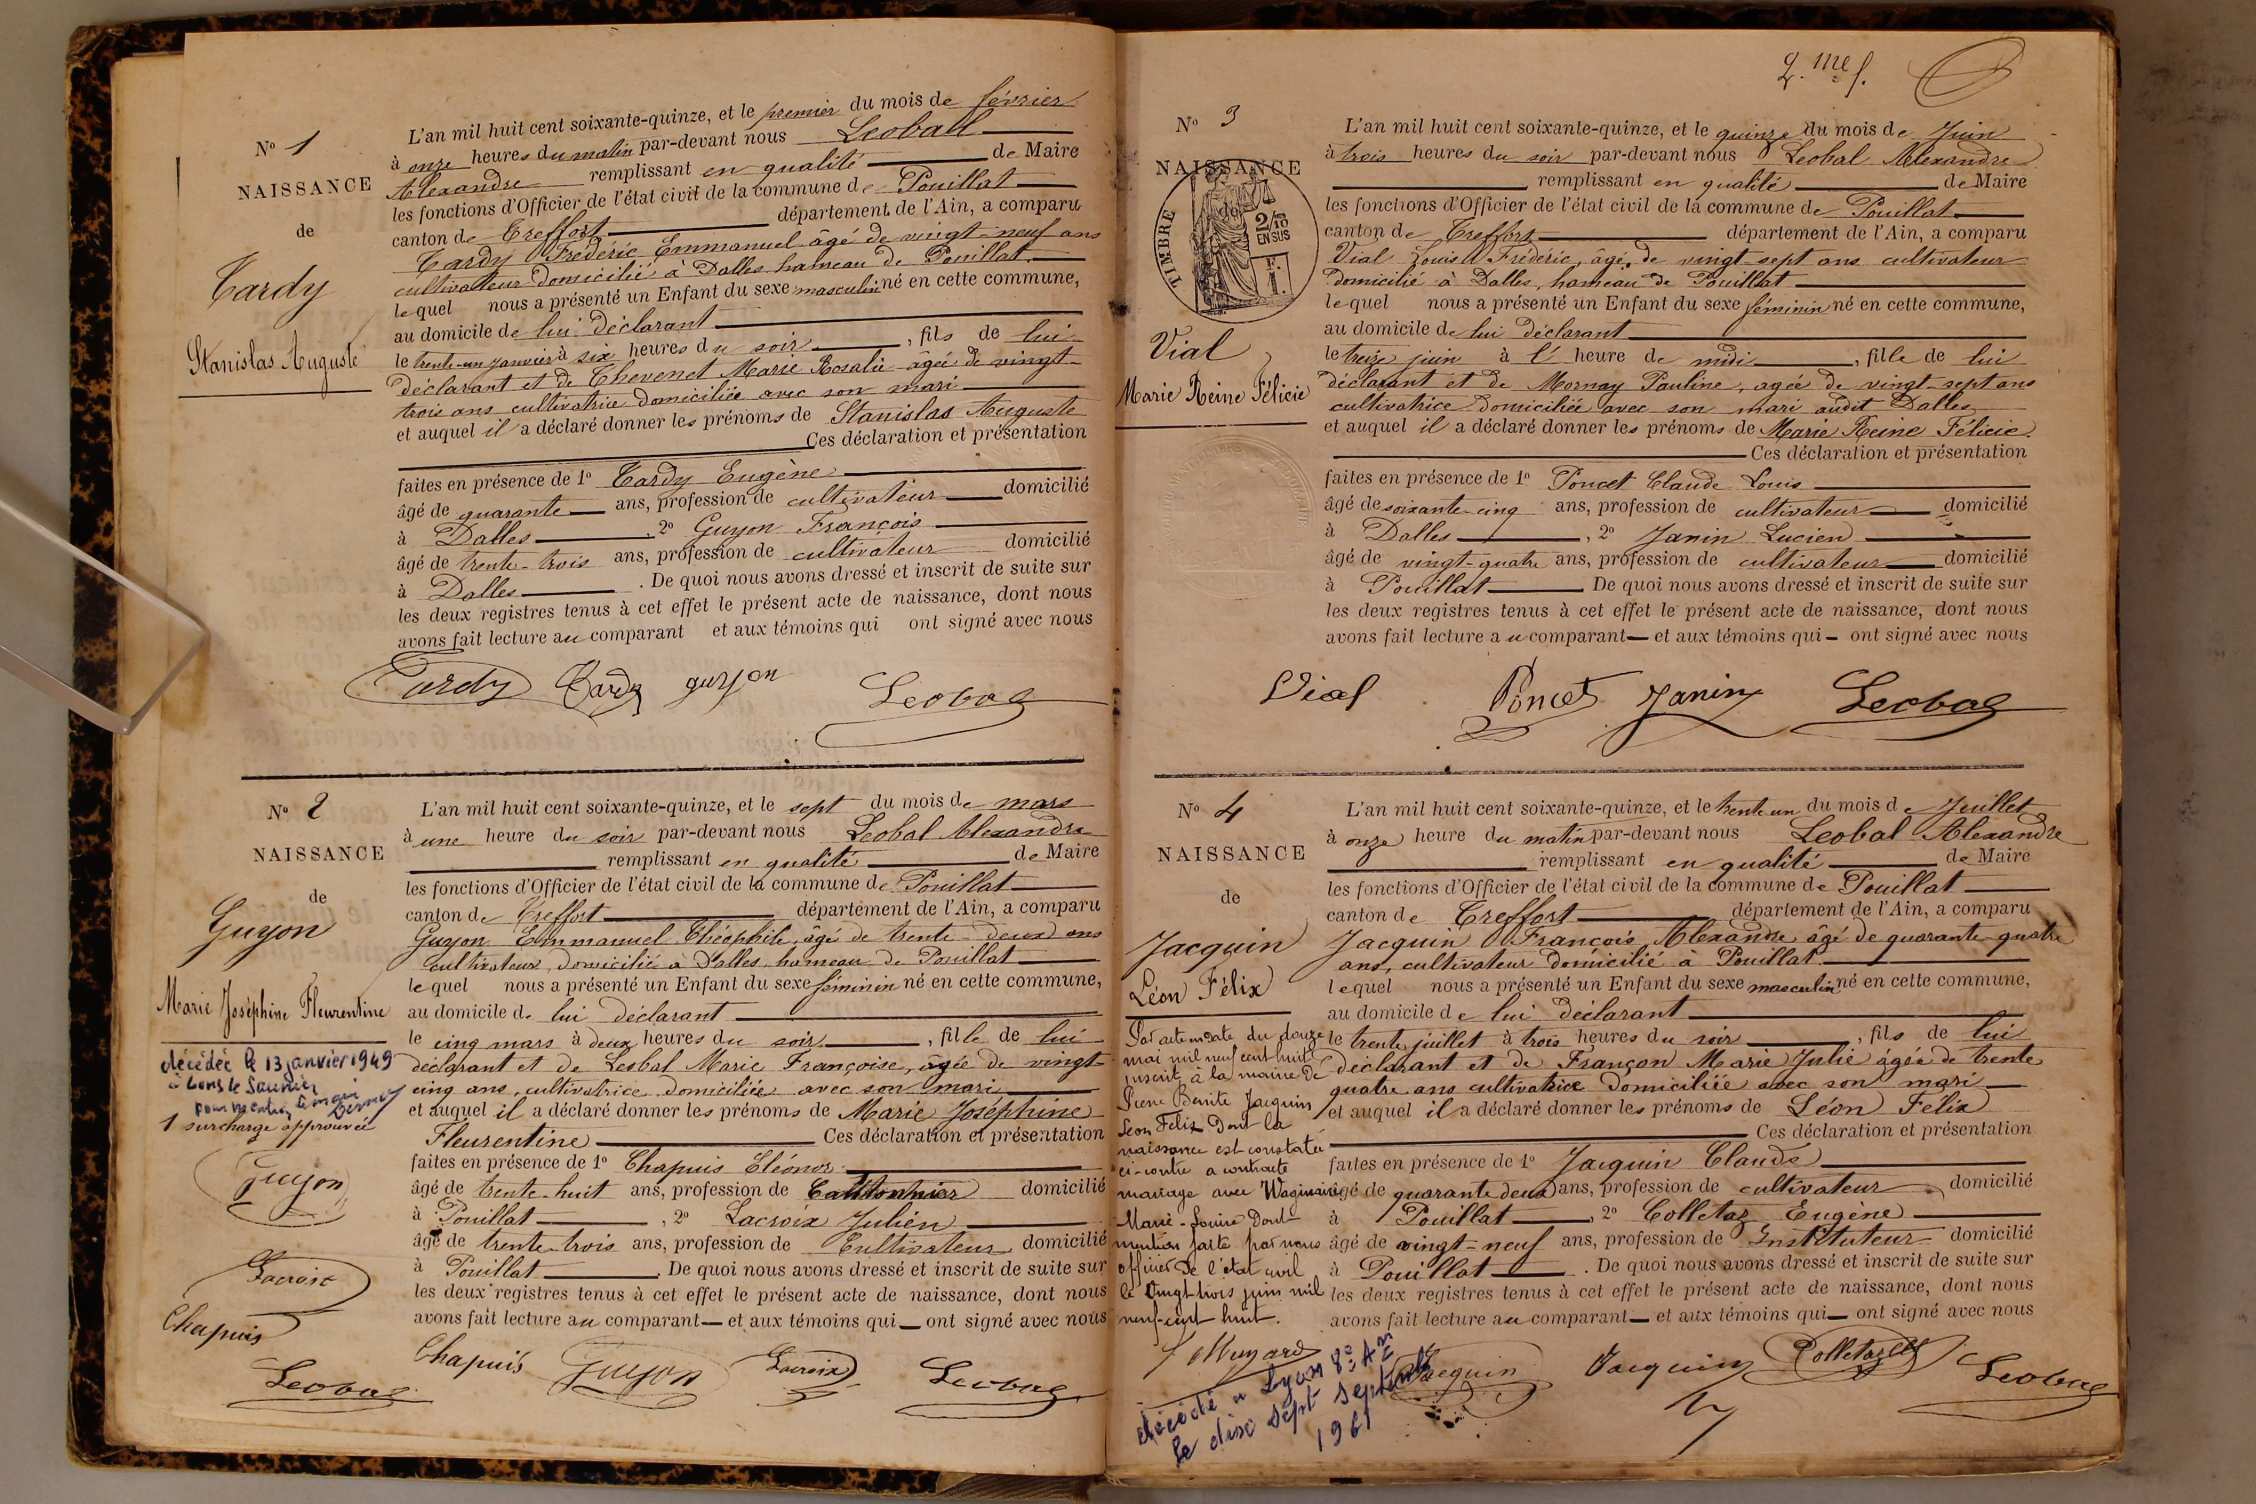 Nº 1
NAISSANCE
de
Tardy
Stanislas Auguste
L'an mil huit cent soixante-quinze, et le premier du mois de février
à onze heures du matin par-devant nous Leobal
Alexandre remplissant en qualité de Maire
les fonctions d'Officier de l'état civil de la commune de Pouillat
canton de Treffort département de l'Ain, a comparu
Tardy Frédéric Emmanuel âgé de vingt-neuf ans
cultivateur domicilié à Dalles hameau de Pouillat
lequel nous a présenté un Enfant du sexe masculin né en cette commune,
au domicile de lui déclarant
le trente-un janvier à six heures du soir, fils de lui
déclarant et de Thevenet Marie Rosalie âgée de vingt-
trois ans cultivatrice domiciliée avec son mari
et auquel il a déclaré donner les prénoms de Stanislas Auguste
Ces déclaration et présentation
faites en présence de 1º Tardy Eugène
âgé de quarante ans, profession de cultivateur domicilié
à Dalles, 2º Guyon François
âgé de trente-trois ans, profession de cultivateur domicilié
à Dalles. De quoi nous avons dressé et inscrit de suite sur
les deux registres tenus à cet effet le présent acte de naissance, dont nous
avons fait lecture au comparant et aux témoins qui ont signé avec nous
Tardy Tardy guyon Leobal
Nº 2
NAISSANCE
de
Guyon
Marie Joséphine Fleurentine
décédée le 13 janvier 1949
à Lons le Saunier
pour mention
1 surcharge approuvée
Guyon
Lacroix
Chapuis
Leobal
L'an mil huit cent soixante-quinze, et le sept du mois de mars
à une heure du soir par-devant nous Leobal Alexandre
remplissant en qualité de Maire
les fonctions d'Officier de l'état civil de la commune de Pouillat
canton de Treffort département de l'Ain, a comparu
Guyon Emmanuel Théophile, âgé de trente-deux ans
cultivateur, domicilié à Dalles hameau de Pouillat
lequel nous a présenté un Enfant du sexe féminin né en cette commune,
au domicile de lui déclarant
le cinq mars à deux heures du soir, fille de lui
déclarant et de Leobal Marie Françoise, âgée de vingt
cinq ans, cultivatrice domiciliée avec son mari
et auquel il a déclaré donner les prénoms de Marie Joséphine
Fleurentine Ces déclaration et présentation
faites en présence de 1º Chapuis Eléonor
âgé de trente-huit ans, profession de Cantonnier domicilié
à Pouillat, 2º Lacroix Julien
âgé de trente-trois ans, profession de Cultivateur domicilié
à Pouillat. De quoi nous avons dressé et inscrit de suite sur
les deux registres tenus à cet effet le présent acte de naissance, dont nous
avons fait lecture au comparant et aux témoins qui ont signé avec nous
Chapuis Guyon Lacroix Leobal
2.me f.
Nº 3
NAISSANCE
de
TIMBRE
2/10
EN SUS
Vial
Marie Reine Félicie
L'an mil huit cent soixante-quinze, et le quinze du mois de Juin
à trois heures du soir par-devant nous Leobal Alexandre
remplissant en qualité de Maire
les fonctions d'Officier de l'état civil de la commune de Pouillat
canton de Treffort département de l'Ain, a comparu
Vial Louis Frédéric, âgé de vingt-sept ans cultivateur
domicilié à Dalles, hameau de Pouillat
lequel nous a présenté un Enfant du sexe féminin né en cette commune,
au domicile de lui déclarant
le treize juin à l' heure de midi, fille de lui
déclarant et de Mornay Pauline, agée de vingt-sept ans
cultivatrice domiciliée avec son mari audit Dalles
et auquel il a déclaré donner les prénoms de Marie Reine Félicie.
Ces déclaration et présentation
faites en présence de 1º Poncet Claude Louis
âgé de soixante-cinq ans, profession de cultivateur domicilié
à Dalles, 2º Janin Lucien
âgé de vingt-quatre ans, profession de cultivateur domicilié
à Pouillat De quoi nous avons dressé et inscrit de suite sur
les deux registres tenus à cet effet le présent acte de naissance, dont nous
avons fait lecture au comparant et aux témoins qui ont signé avec nous
Vial Poncet Janin Leobal
Nº 4
NAISSANCE
de
Jacquin
Léon Félix
Par acte en date du douze
mai mil neuf cent huit
inscrit à la mairie de
Jacquin
Léon Félix dont la
naissance est constatée
ci-contre a contracté
mariage avec
Marie-Louise Dont
mention faite par nous
officier de l'état civil
le vingt trois juin mil
neuf-cent huit.
décédé à Lyon 8e Art
le dix sept septembre
1961
L'an mil huit cent soixante-quinze, et le trente un du mois de Juillet
à onze heure du matin par-devant nous Leobal Alexandre
remplissant en qualité de Maire
les fonctions d'Officier de l'état civil de la commune de Pouillat
canton de Treffort département de l'Ain, a comparu
Jacquin François Alexandre âgé de quarante-quatre
ans, cultivateur domicilié à Pouillat
lequel nous a présenté un Enfant du sexe masculin né en cette commune,
au domicile de lui déclarant
le trente juillet à trois heures du soir, fils de lui
déclarant et de Françon Marie Julie âgée de trente
quatre ans cultivatrice domiciliée avec son mari
et auquel il a déclaré donner les prénoms de Léon Félix
Ces déclaration et présentation
faites en présence de 1º Jacquin Claude
âgé de quarante deux ans, profession de cultivateur domicilié
à Pouillat, 2º Colletaz Eugène
âgé de vingt-neuf ans, profession de Instituteur domicilié
à Pouillat. De quoi nous avons dressé et inscrit de suite sur
les deux registres tenus à cet effet le présent acte de naissance, dont nous
avons fait lecture au comparant et aux témoins qui ont signé avec nous
Jacquin Jacquin Colletaz Leobal